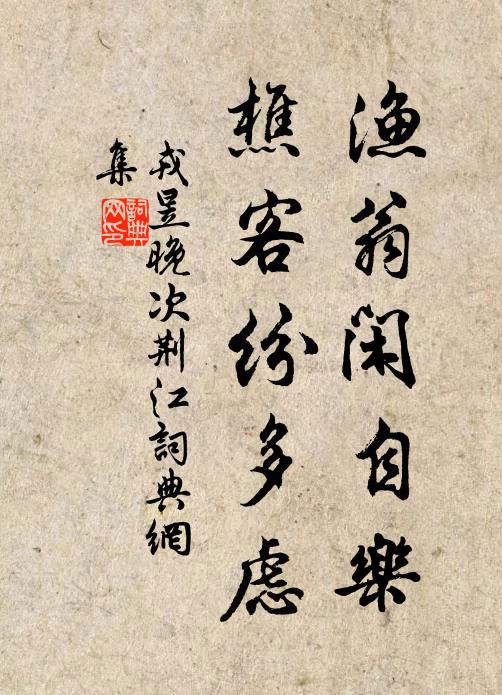 渔翁閑自樂
樵客紛多慮
戎昱晚次荆江詞典網
集
詞典
网印